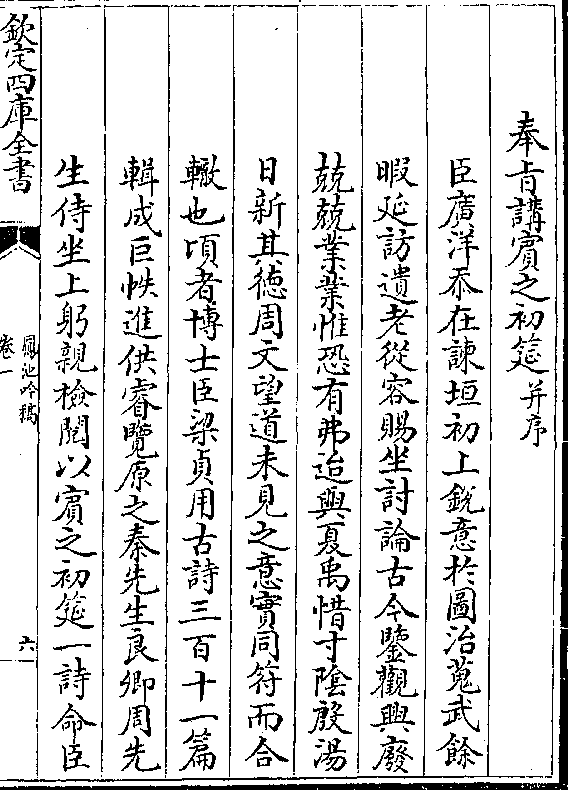 奉旨講賓之初筵并序
臣廣洋忝在諫垣初上銳意於圖治蒐武餘
暇延訪遺老從容賜坐討論古今鑒觀興廢
兢兢業業惟恐有弗迨與夏禹惜寸隂殷湯
日新其徳周文望道未見之意實同符而合
轍也頃者博士臣梁貞用古詩三百十一篇
輯成巨帙進供睿覽原之秦先生良卿周先
生侍坐上躬親檢閲以賓之初筵一詩命臣
欽定四庫全書
鳳池吟稿
卷一
六